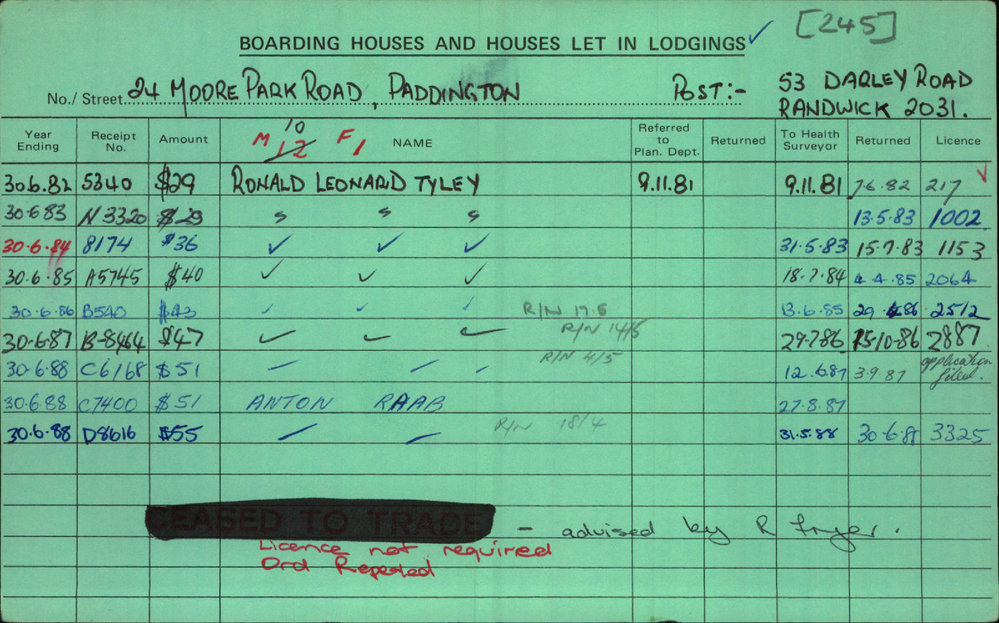 [245]
BOARDING HOUSES AND HOUSES LET IN LODGINGS ✓
No./Street 24 MOORE PARK ROAD, PADDINGTON POST:- 53 DARLEY ROAD
RANDWICK 2031.
Year Ending Receipt No. Amount M 12 10 F 1 NAME Referred to Plan. Dept. Returned To Health Surveyor Returned Licence
30.6.82 5340 $29 RONALD LEONARD TYLEY 9.11.81 9.11.81 7.6.82 217 ✓
30.6.83 N3320 $29 " " " 13.5.83 1002
30.6.84 8174 $36 ✓ ✓ ✓ 31.5.83 15.7.83 1153
30.6.85 A5745 $40 ✓ ✓ ✓ 18.7.84 4.4.85 2064
30.6.86 B540 $43 ✓ ✓ ✓ R/N 17.5 13.6.85 29.4.86 2512
30.6.87 B-8464 $47 ✓ ✓ ✓ R/N 14/5 29.7.86 15.10.86 2887
30.6.88 C6168 $51 R/N 4/5 12.6.87 3.9.87 application filed.
30.6.88 C7400 $51 ANTON RAAB 27.8.87
30.6.88 D8616 $55 R/N 18/4 31.5.88 30.6.88 3325
CEASED TO TRADE - advised by R Fryer.
Licence not required
Ord Repealed